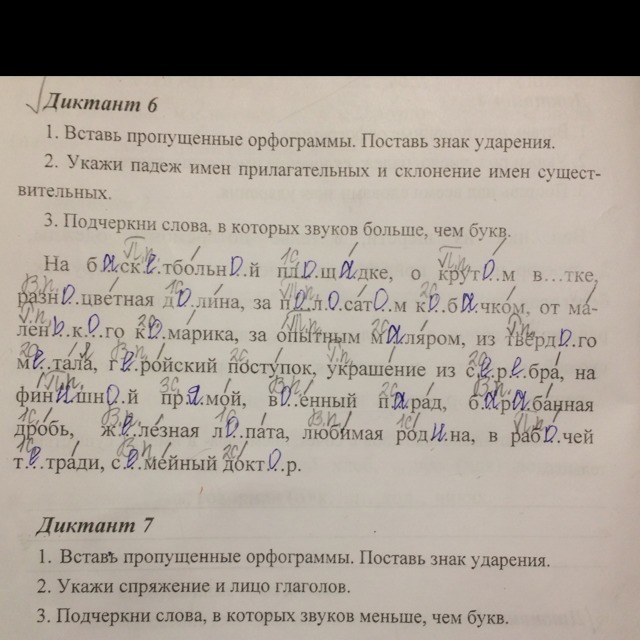 Диктант 6
1. Вставь пропущенные орфограммы. Поставь знак ударения.
2. Укажи падеж имен прилагательных и склонение имен сущест-
вительных.
3. Подчеркни слова, в которых звуков больше, чем букв.
На ба..ске..тбольно..й пло..ща..дке, о круто..м в…тке,
разно..цветная до..лина, за по..ло..сато..м ко..ба..чком, от ма-
лень..ко..го ко..марика, за опытным ма..ляром, из твердо..го
ме..тала, ге..ройский поступок, украшение из се..ре..бра, на
фини..шно..й пря..мой, во..енный па..рад, ба..ра..банная
дробь, же..лезная ло..пата, любимая роди..на, в рабо..чей
те..тради, се..мейный докто..р.
Диктант 7
1. Вставь пропущенные орфограммы. Поставь знак ударения.
2. Укажи спряжение и лицо глаголов.
3. Подчеркни слова, в которых звуков меньше, чем букв.